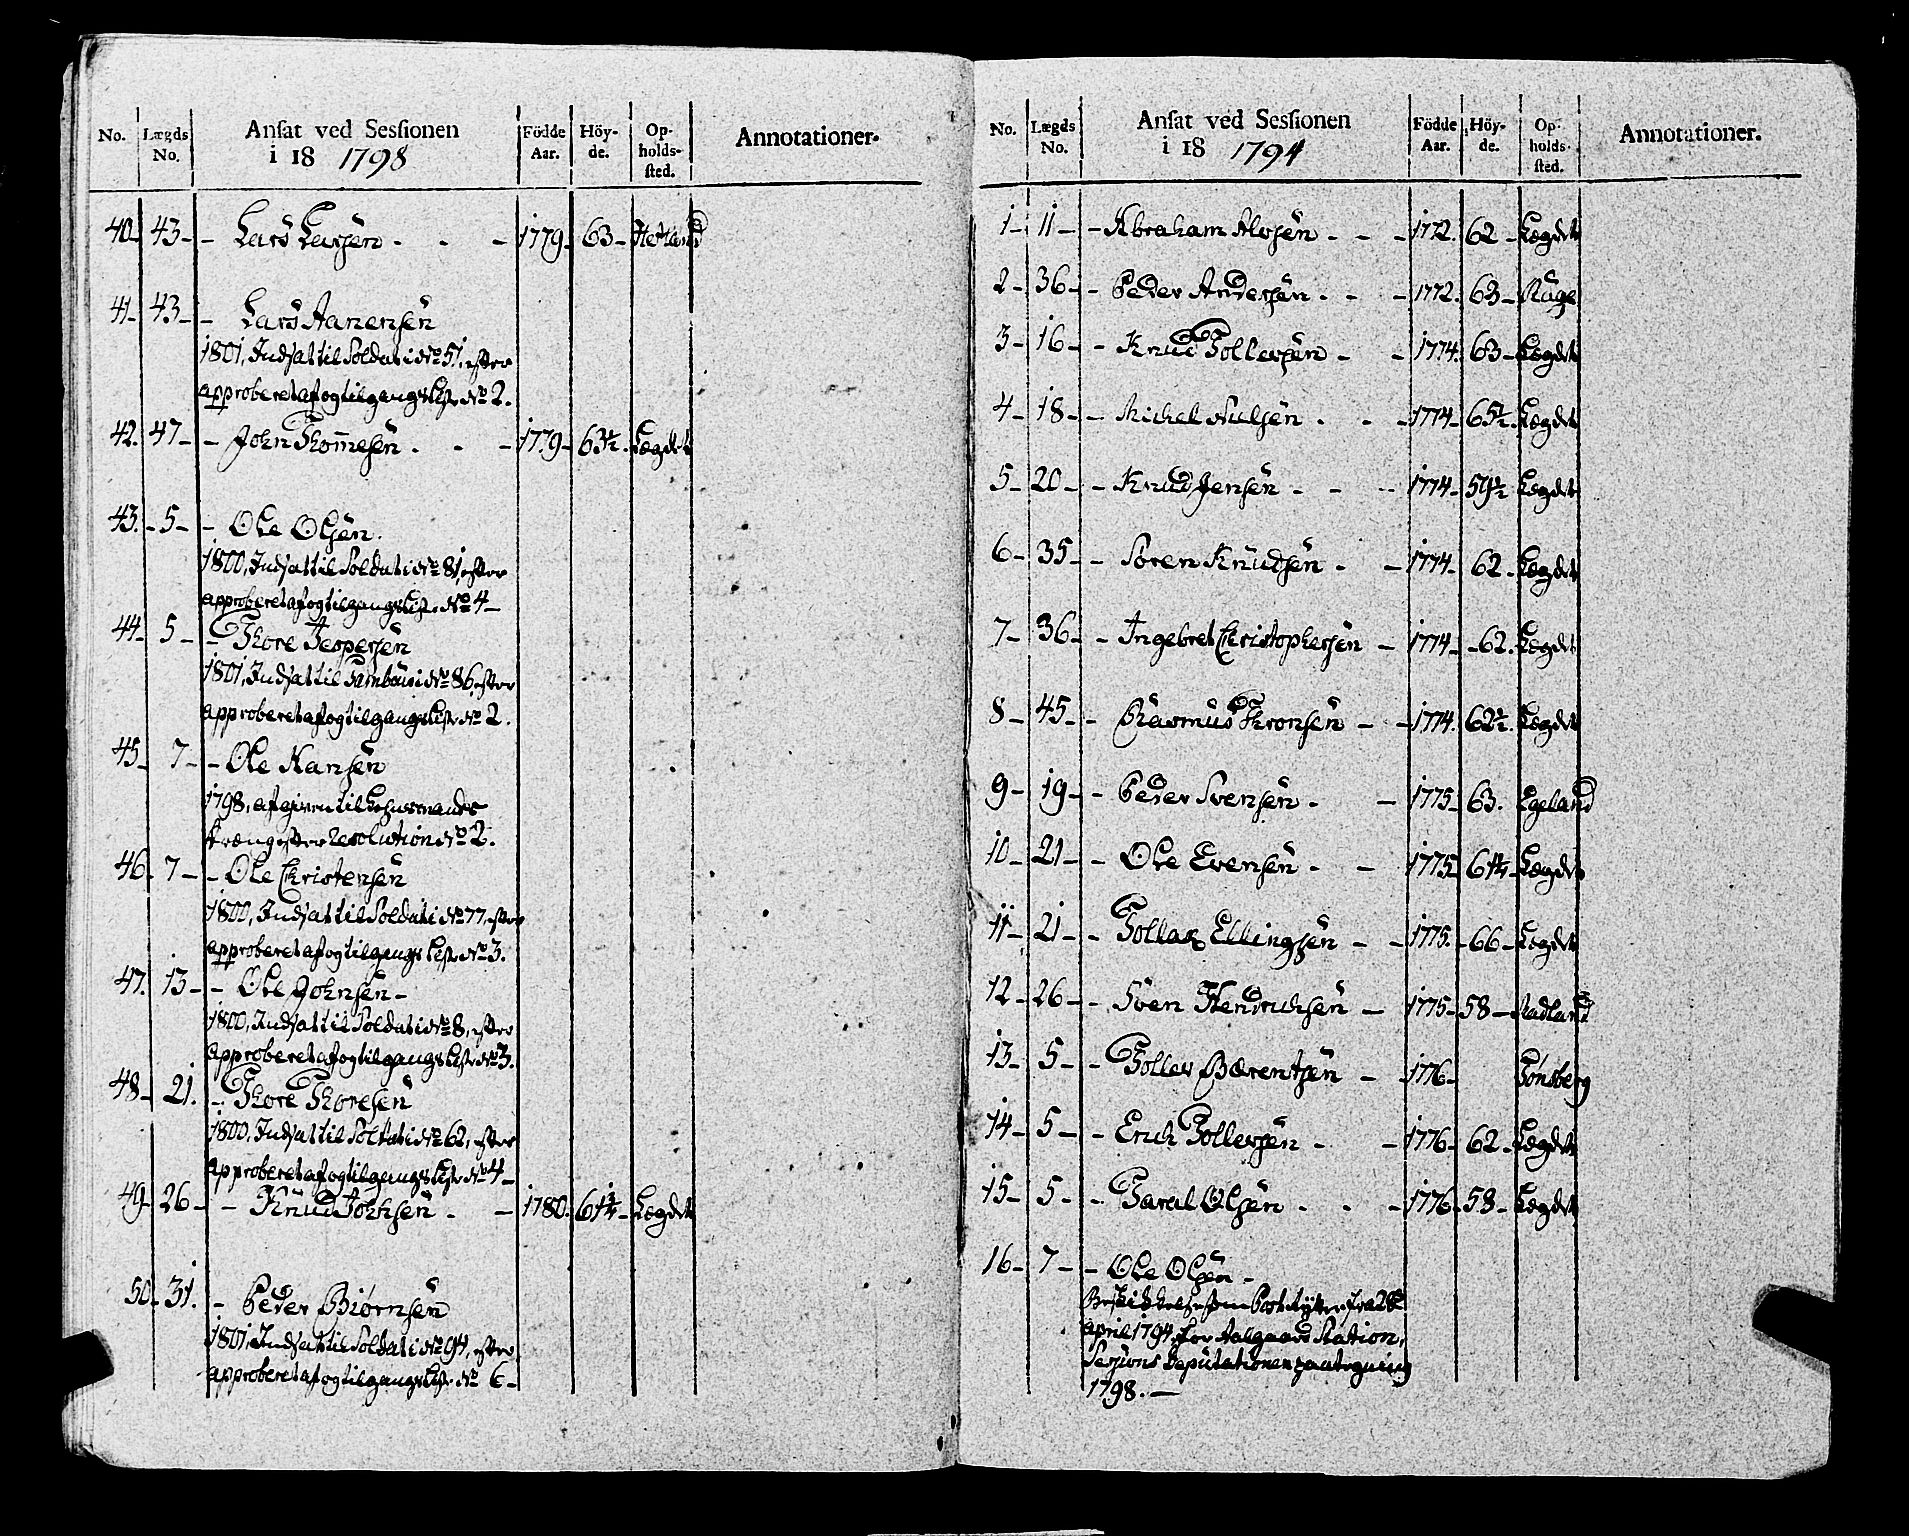 No. Lægds No. Ansat ved Sessionen i 18 1798 Födde Aar. Höyde. Opholdssted. Annotationer.
40 43 - Lars Larsen - - 1779 63 Hetland
41 43 - Lars Aanensen
1801, Indsat til Soldat i No 51, efter
approberet af og tilgangs List No 2.
42. 47 - John Thommesen - - 1779 63½ Lægdet
43. 5 - Ole Olsen.
1800, Indsat til Soldat i No 81, efter
approberet af og tilgangs List No 4
44 5 - Thore Jespersen
1801, Indsat til Tambour i No 86, efter
approberet af og tilgangs List No 2.
45 7 - Ole Hansen
1798, afgiven til
efter resolution No 2.
46 7 - Ole Christensen
1800, Indsat til Soldat i No 77, efter
approberet af og tilgangs List No 3.
47. 13 - Ole Johnsen -
1800, Indsat til Soldat i No 8, efter
approberet af og tilgangs List No 3.
48 21. - Thore Thoresen
1800, Indsat til Soldat i No 62, efter
approberet af og tilgangs List No 4
49 26 - Knud - 1780. Lægdet
50 31. - Peder Biørnsen
1801, Indsat til Soldat i No 94, efter
approberet af og tilgangs List No 6
No. Lægds No. Ansat ved Sessionen i 18 1794 Födde Aar. Höyde. Opholdssted. Annotationer.
1 11 - Abraham - - 1772. 62 Lægdet
2 36 - Peder Andersen - - 1772. 63 Ruge
3 16 - Knud Tollersen - - 1774. 63 Lægdet
4 18 - Michel - - 1774 65½ Lægdet
5 20 - Knud Jensen - - 1774 Lægdet
6 35 - Søren Knudsen - - 1774 62 Lægdet
7 36 - Ingebret Christophersen - 1774 62. Lægdet
8 45 - Rasmus Thronsen - 1774. 62½. Lægdet
9 19 - Peder Svensen - - 1775 63. Egeland
10 21 - Ole Evensen - - 1775 Lægdet
11 21 - Tollak Ellingsen - 1775. 66 Lægdet
12 26 - Sven Hendrichsen - 1775 58
13 5 - Toller Bærentsen - 1776 Tønsberg
14 5 - Erich Tollersen - 1776 62 Lægdet
15 5 - Taral Olsen - - 1776 58 Lægdet
16 7 - Ole Olsen -
som Postflytter fra 28de
April 1794, for Aalgaard Station,
Sessions Deputationens paategning
1798. -